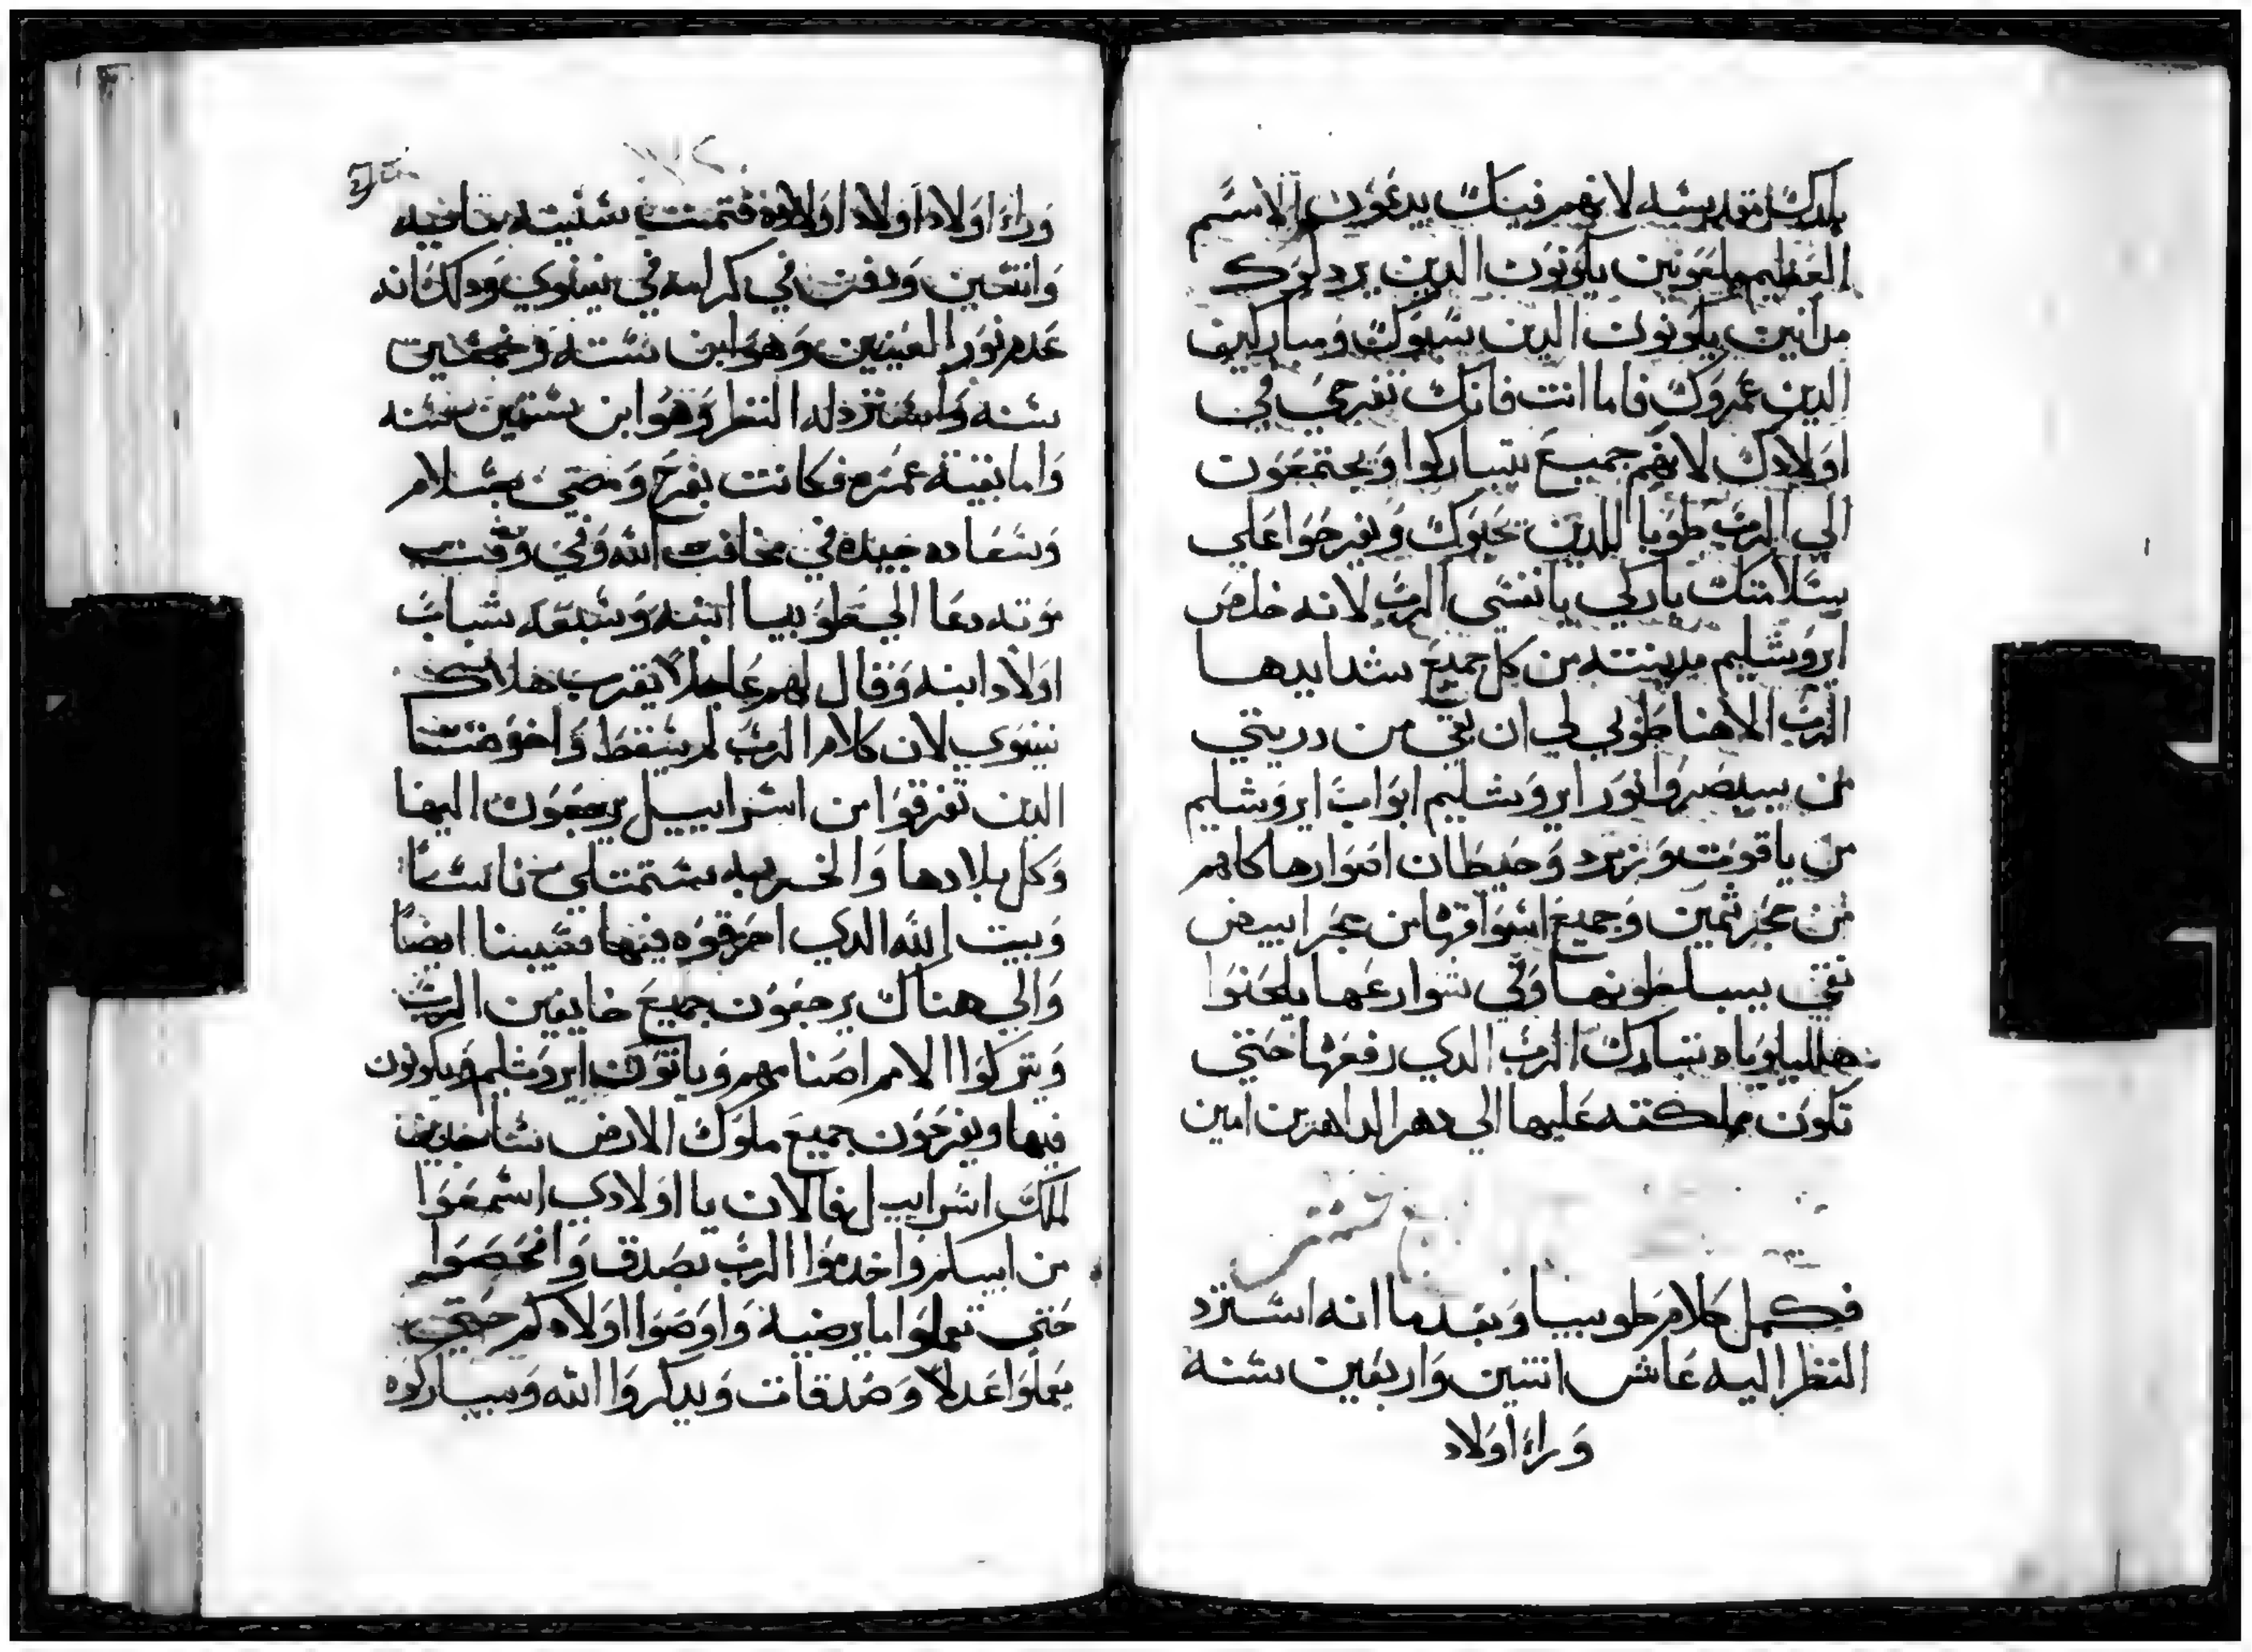 بلدك مقدسه لانهم فيك يدعون الاسم
العظيم ملعونين يكونون الدين يردلوك
مدانين يكونون الدين يسبوك ومباركين
الدين عمروك فاما انت فانك تفرحي في
اولادك لانهم جميع يتباركوا ويجتمعون
الي الرب طوبا للدين يحبوك ويفرحوا علي
سلامتك باركي يا نفسي الرب لانه خلص
ايروشليم مدينته من كل جميع شدايدها
الرب الاهنا طوبي لي ان بقي من دريتي
من يبصروا نور ايروشليم ابواب ايروشليم
من ياقوت وزمرد وحيطان اصوارها كلهم
من حجر ثمين وجميع اسواقها من حجر ابيض
نقي يبسطونها وفي شوارعها يلحنوا
هلليلوياه تبارك الرب الدي رفعها حتي
تكون مملكته عليها الي دهر الداهرين امين
فكمل كلام طوبيا وبعد ما انه استرد
النظر اليه عاش اتنين واربعين سنه
وراء اولاد
وراء اولاد اولاد اولاده فتمت سنيته مايه
واتنين ودفن في كرامه في نينوي ودلك انه
عدم نور العينين وهو ابن سته وخمسين
سنه واسترد له النظر وهو ابن ستين سنه
واما بقية عمره فكانت بفرح ومضي بسلام
وسعاده جيده في مخافت الله وفي وقت
موته دعا الي طوبيا ابنه وسبعه شباب
اولاد ابنه وقال لهم عاجلا يقرب هلاك
نينوي لان كلام الرب لم يسقط واخوتنا
الدين تفرقوا من اسراييل يرجعون اليها
وكل بلادها والخربه ستمتلي ناسا
وبيت الله الدي احرقوه فيها ايضا
والي هناك يرجعون جميع خايفين الرب
ويتركوا الامم اصنامهم وياتون ايروشليم ويكونون
فيها ويفرحون جميع ملوك الارض ساجدين
لملك اسراييل فالان يا اولادي اسمعوا
من ابيكم واخدموا الرب بصدق وافحصوا
حتي تعملوا ما يرضيه واوصوا اولادكم حتي
يعملوا عدلا وصدقات ويدكروا الله ويباركوه